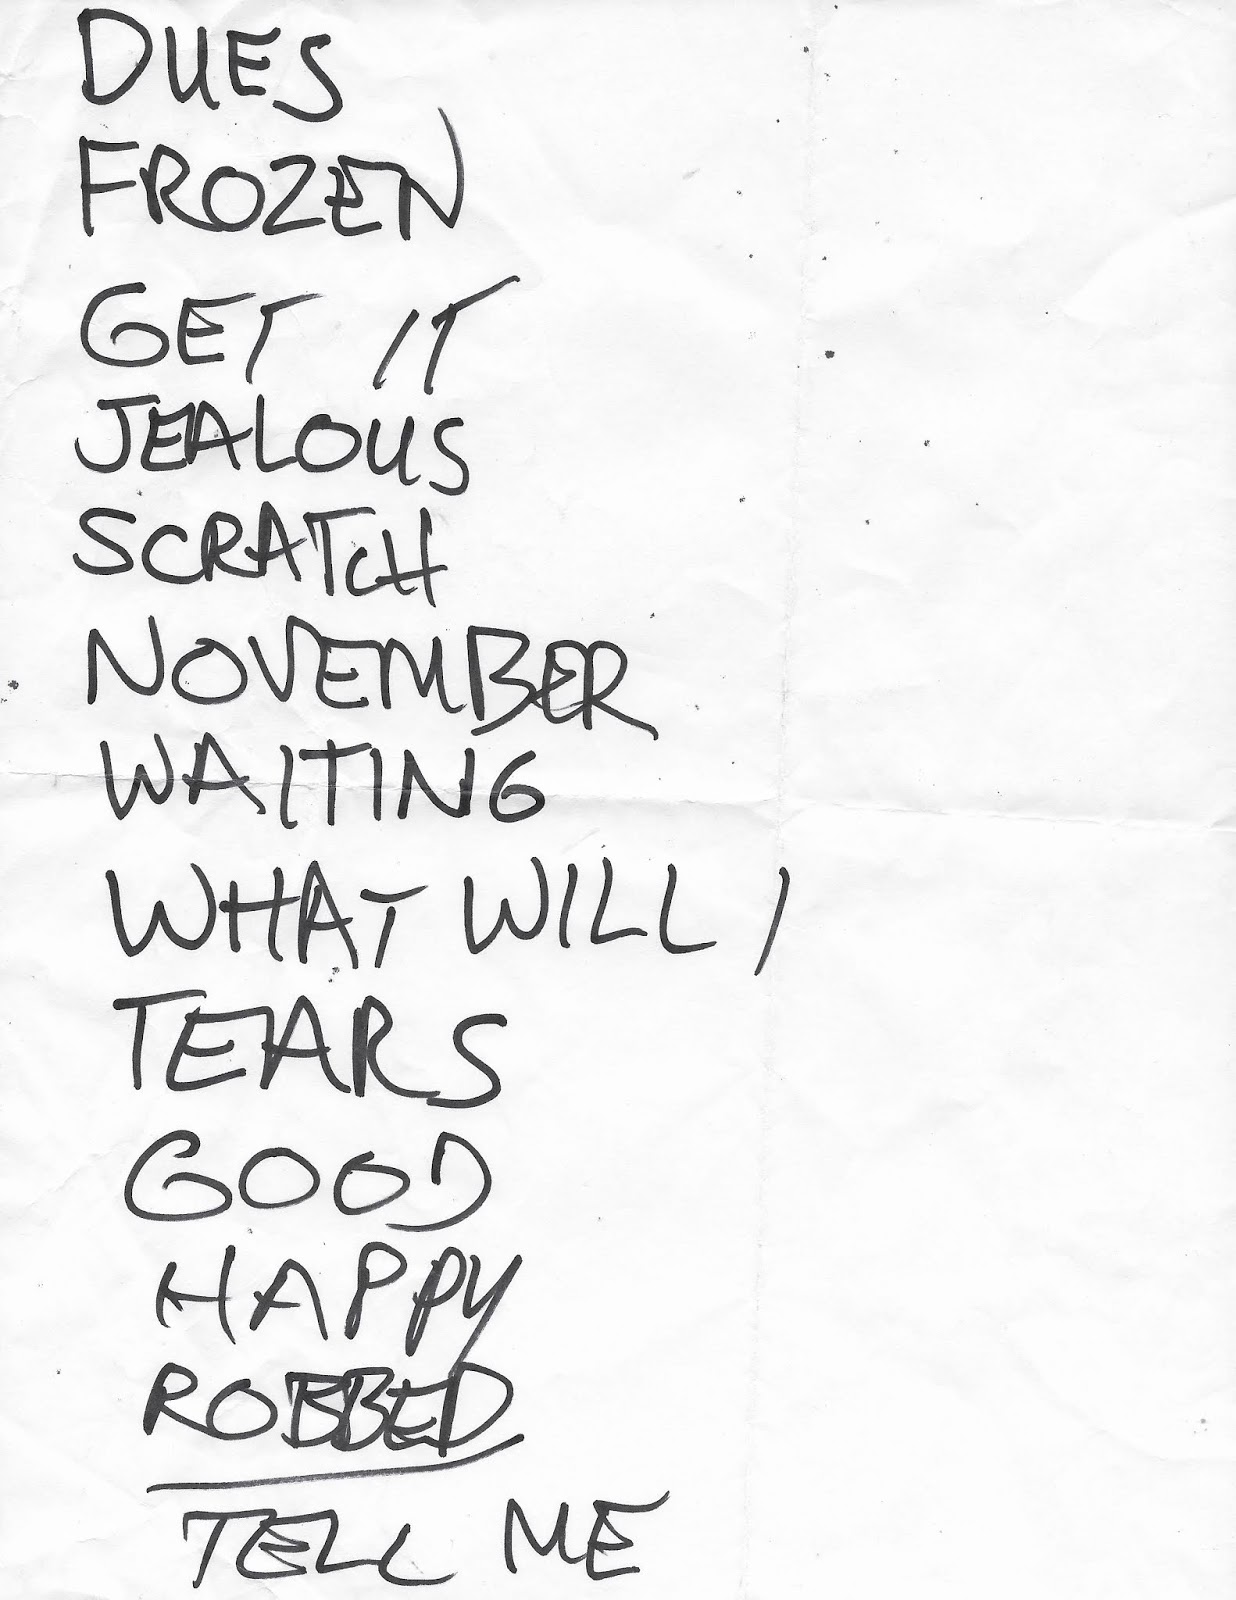 DUES
FROZEN
GET IT
JEALOUS
SCRATCH
NOVEMBER
WAITING
WHAT WILL I
TEARS
GOOD
HAPPY
ROBBED
TELL ME